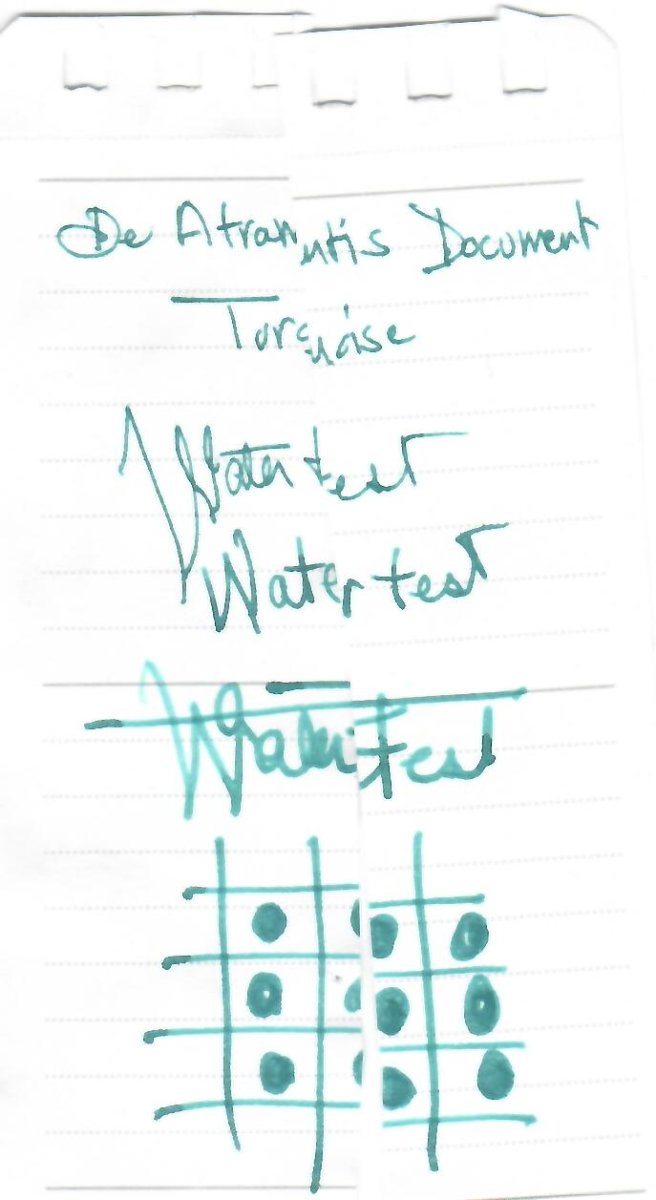 De Atramentis Document
Turquoise
Water test
Water test
Water test